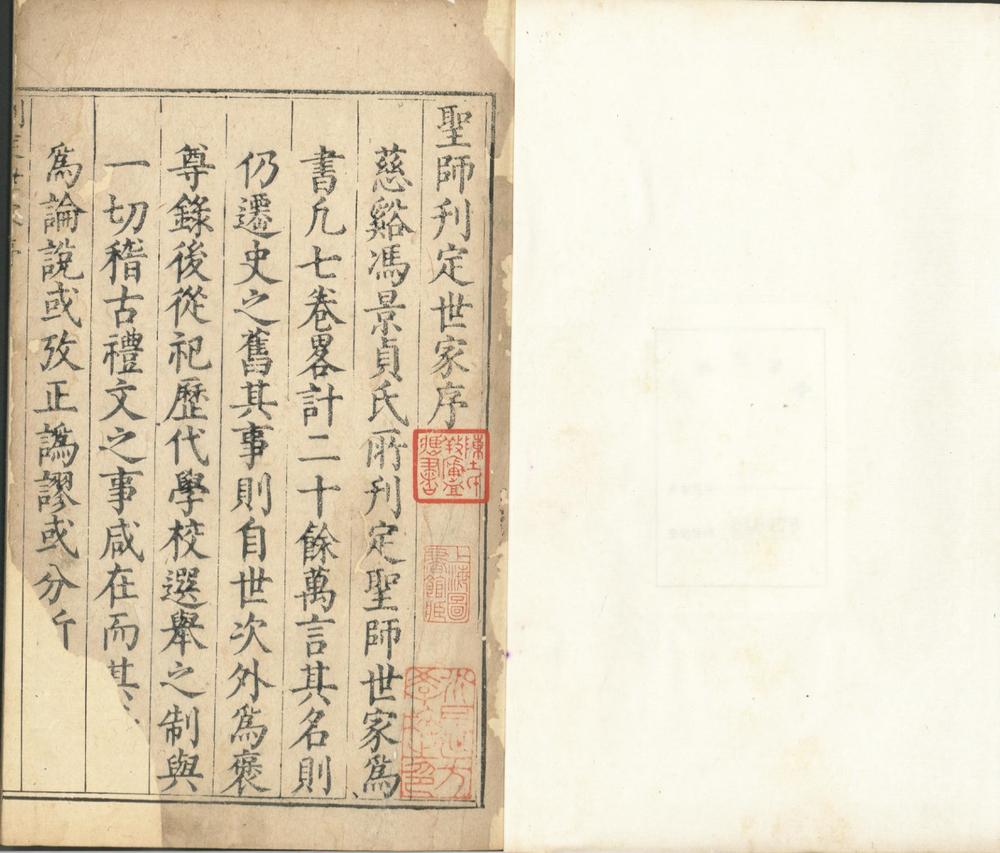 聖師刋定世家序
慈谿馮景貞氏所刋定聖師世家爲
書凢七巻畧計二十餘萬言其名則
仍遷史之舊其事則自世次外爲褒
尊錄後從祀歷代學校選舉之制與
一切稽古禮文之事咸在而其
爲論說或攷正譌謬或分
上海圖書館藏